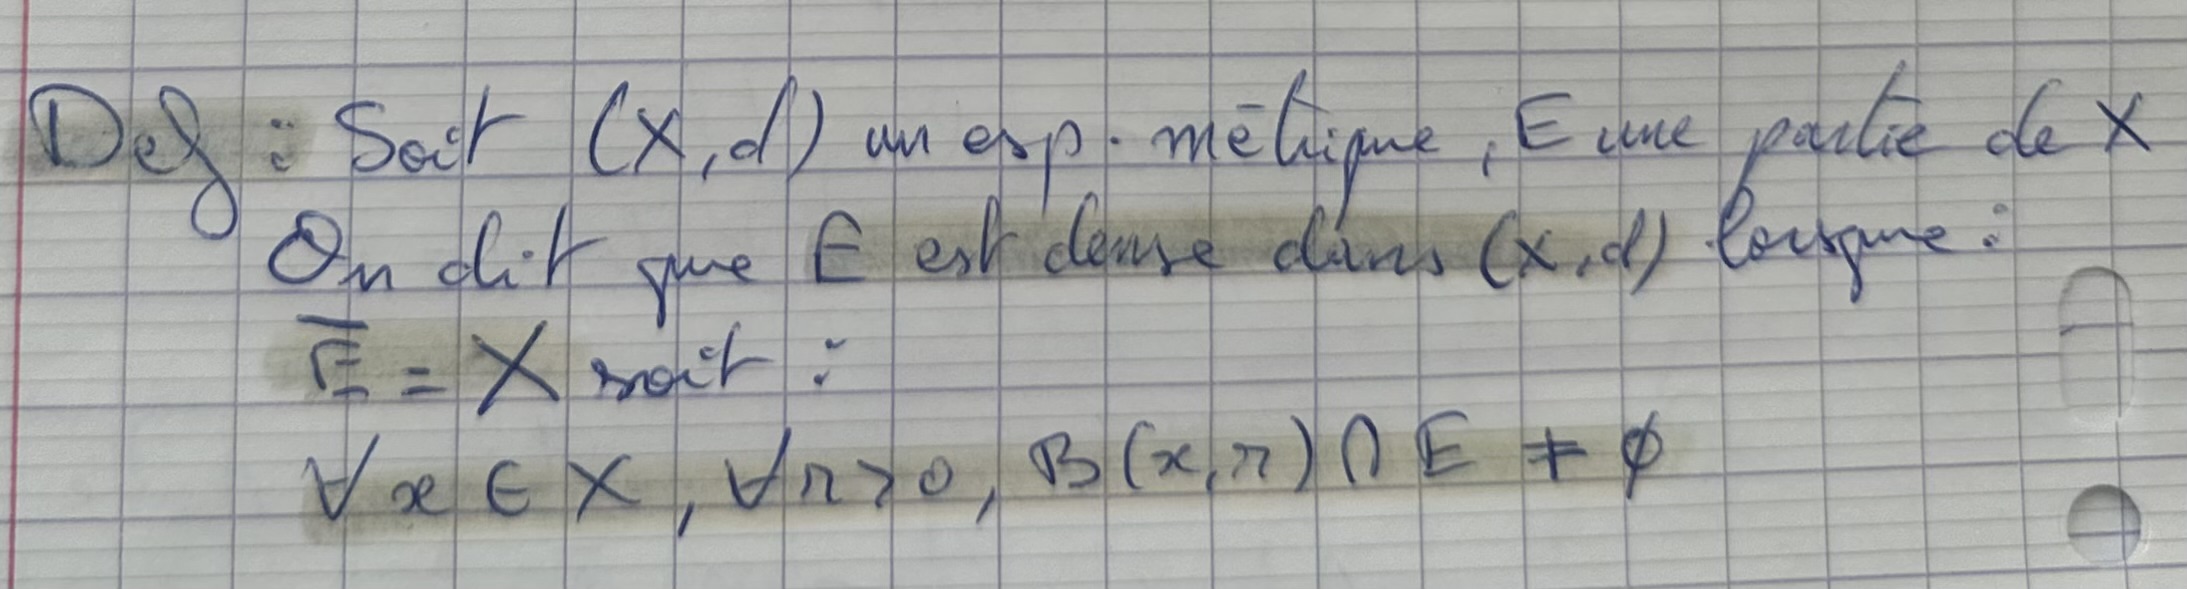 Def : Soit (X,d) un esp. métrique, E une partie de X
On dit que E est dense dans (X,d) lorsque :
E̅ = X soit :
∀ x ∈ X, ∀r>0, B(x,r) ∩ E ≠ ∅